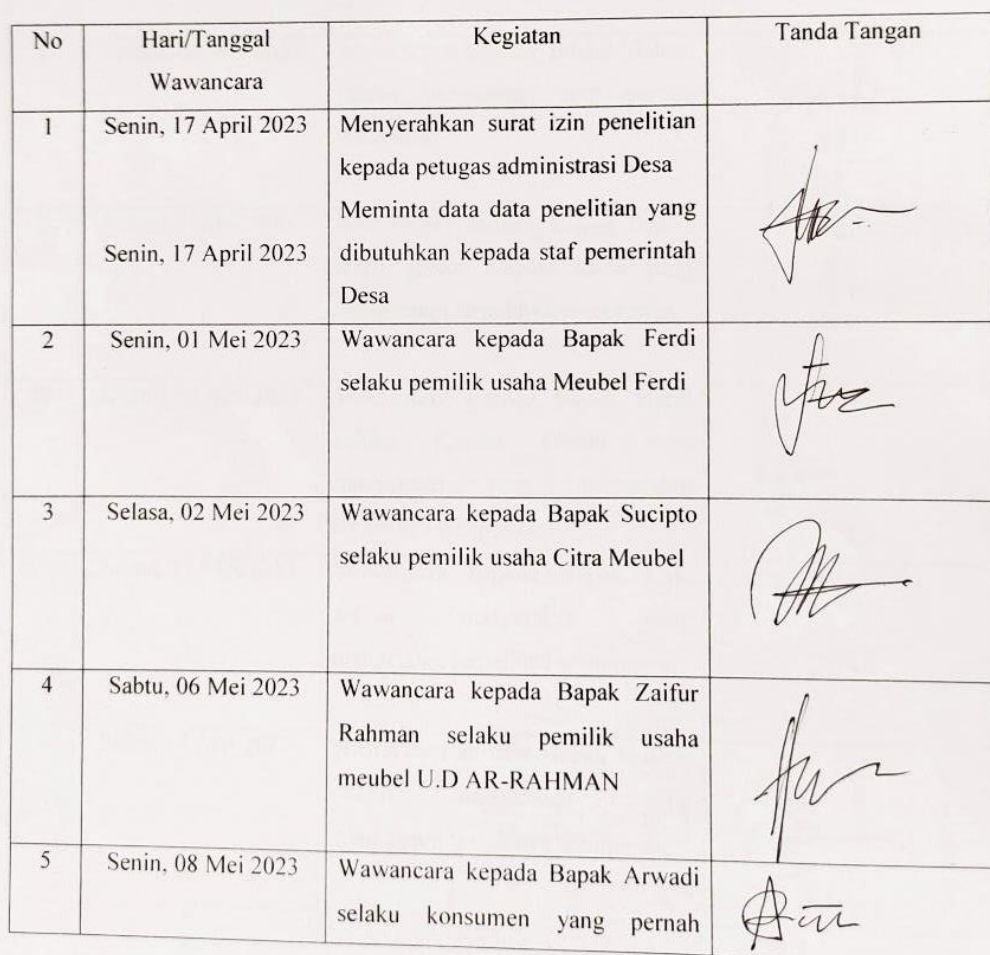 No Hari/Tanggal Kegiatan Tanda Tangan
Wawancara
1 Senin, 17 April 2023 Menyerahkan surat izin penelitian
kepada petugas administrasi Desa
Meminta data data penelitian yang
Senin, 17 April 2023 dibutuhkan kepada staf pemerintah
Desa
2 Senin, 01 Mei 2023 Wawancara kepada Bapak Ferdi
selaku pemilik usaha Meubel Ferdi
3 Selasa, 02 Mei 2023 Wawancara kepada Bapak Sucipto
selaku pemilik usaha Citra Meubel
4 Sabtu, 06 Mei 2023 Wawancara kepada Bapak Zaifur
Rahman selaku pemilik usaha
meubel U.D AR-RAHMAN
5 Senin, 08 Mei 2023 Wawancara kepada Bapak Arwadi
selaku konsumen yang pernah